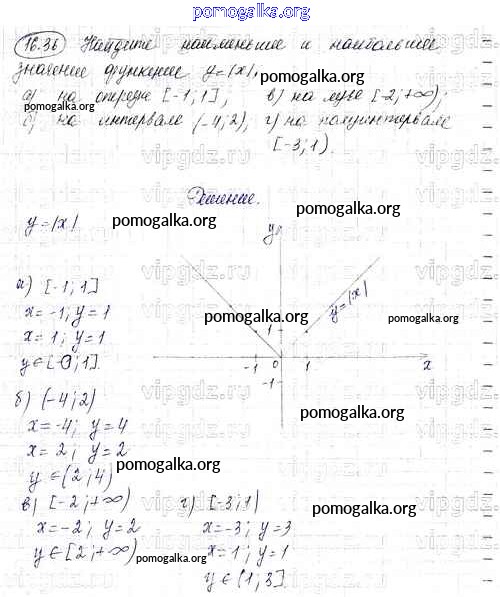 pomogalka.org
16.36 Найдите наименьшее и наибольшее
значение функции y=|x|,
а) на отрезке [-1;1]; в) на луче [-2;+∞);
pomogalka.org
б) на интервале (-4;2), г) на полуинтервале
[-3;1).
Решение.
pomogalka.org
y=|x|
pomogalka.org
y
vipgdz.ru
а) [-1;1]
x=-1; y=1
y=|x|
x=1; y=1
pomogalka.org
1
pomogalka.org
y∈[0;1].
-1 0 1 x
-1
б) (-4;2)
x=-4; y=4
pomogalka.org
x=2; y=2
pomogalka.org
y∈(2;4)
в) [-2;+∞) г) [-3;1)
pomogalka.org
x=-2; y=2 x=-3; y=3
y∈[2;+∞) x=1; y=1
pomogalka.org
pomogalka.org
y∈(1;3].